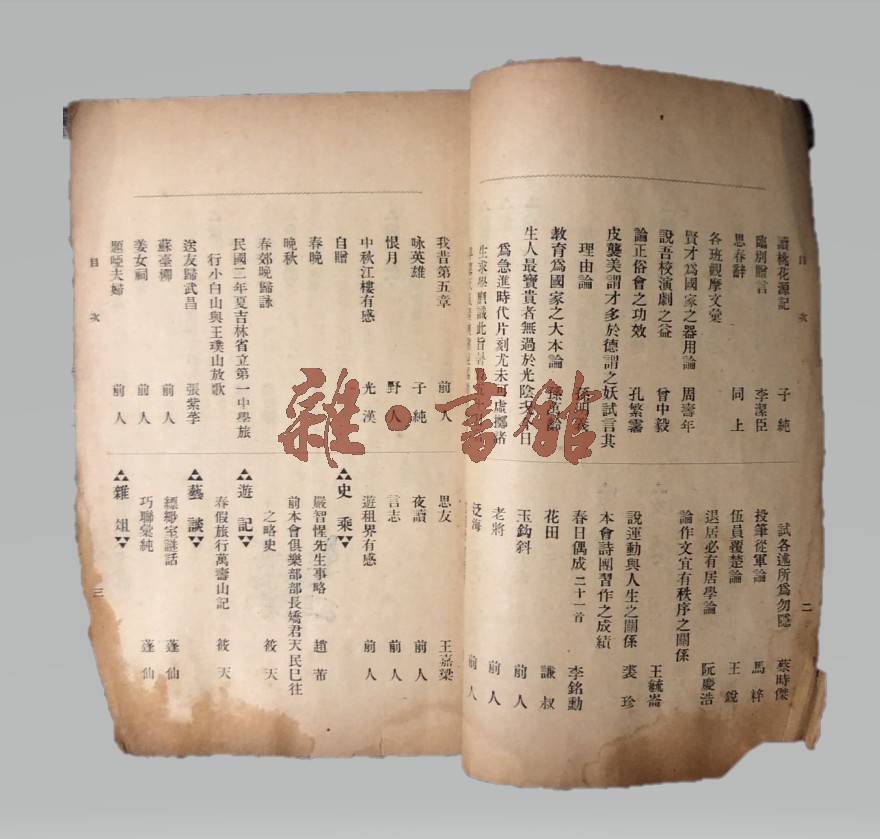 目次
讀桃花源記 子純
臨別贈言 李潔臣
思春辭 同上
各班觀摩文彙
賢才爲國家之器用論 周壽年
說吾校演劇之益 曾中毅
論正俗會之功效 孔繁霱
皮襲美謂才多於德謂之妖試言其
理由論
教育爲國家之大本論
生人最寶貴者無過於光陰
爲急進時代片刻尤未可虛擲者
生求學
二
試各述所爲勿隱 蔡時傑
投筆從軍論 馬粹
伍員覆楚論 王銳
退居必有居學論 阮慶浩
論作文宜有秩序之關係
王毓崙
說運動與人生之關係 裘珍
本會詩團習作之成績
春日偶成二十一首 李銘勳
花田 謙叔
玉鈎斜 前人
老將 前人
泛海 前人
我昔第五章 前人
咏英雄 子純
恨月 野人
中秋江樓有感 光漢
自贈
春晚
晚秋
春郊晚歸詠
民國三年夏吉林省立第一中學旅
行小白山與王璞山放歌
送友歸武昌 張紫𦫼
蘇臺柳 前人
姜女祠 前人
題啞夫婦 前人
目次
思友 王嘉樑
夜讀 前人
言志 前人
遊租界有感 前人
史乘
嚴智惺先生事略 趙芾
前本會俱樂部部長嬌君天民已往
之略史 筱天
遊記
春假旅行萬壽山記 筱天
藝談
縹緲室謎話 蓬仙
巧聯彙純 蓬仙
雜俎
三
雜·書館